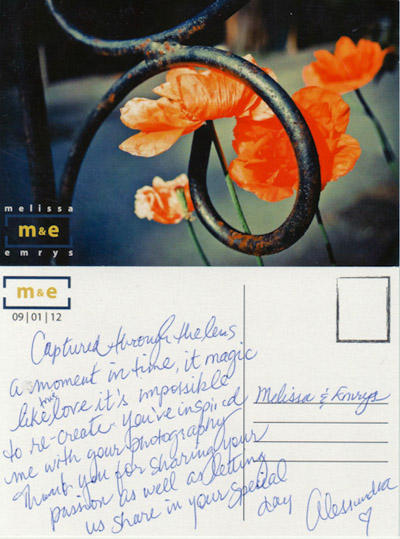 melissa
m&e
emrys
m&e
09|01|12
Captured through the lens
a moment in time, it magic
like true love it's impossible
to re-create. You've inspired
me with your photography
Thank you for sharing your
passion as well as letting
us share in your special
day
Melissa & Emrys
Alessandra